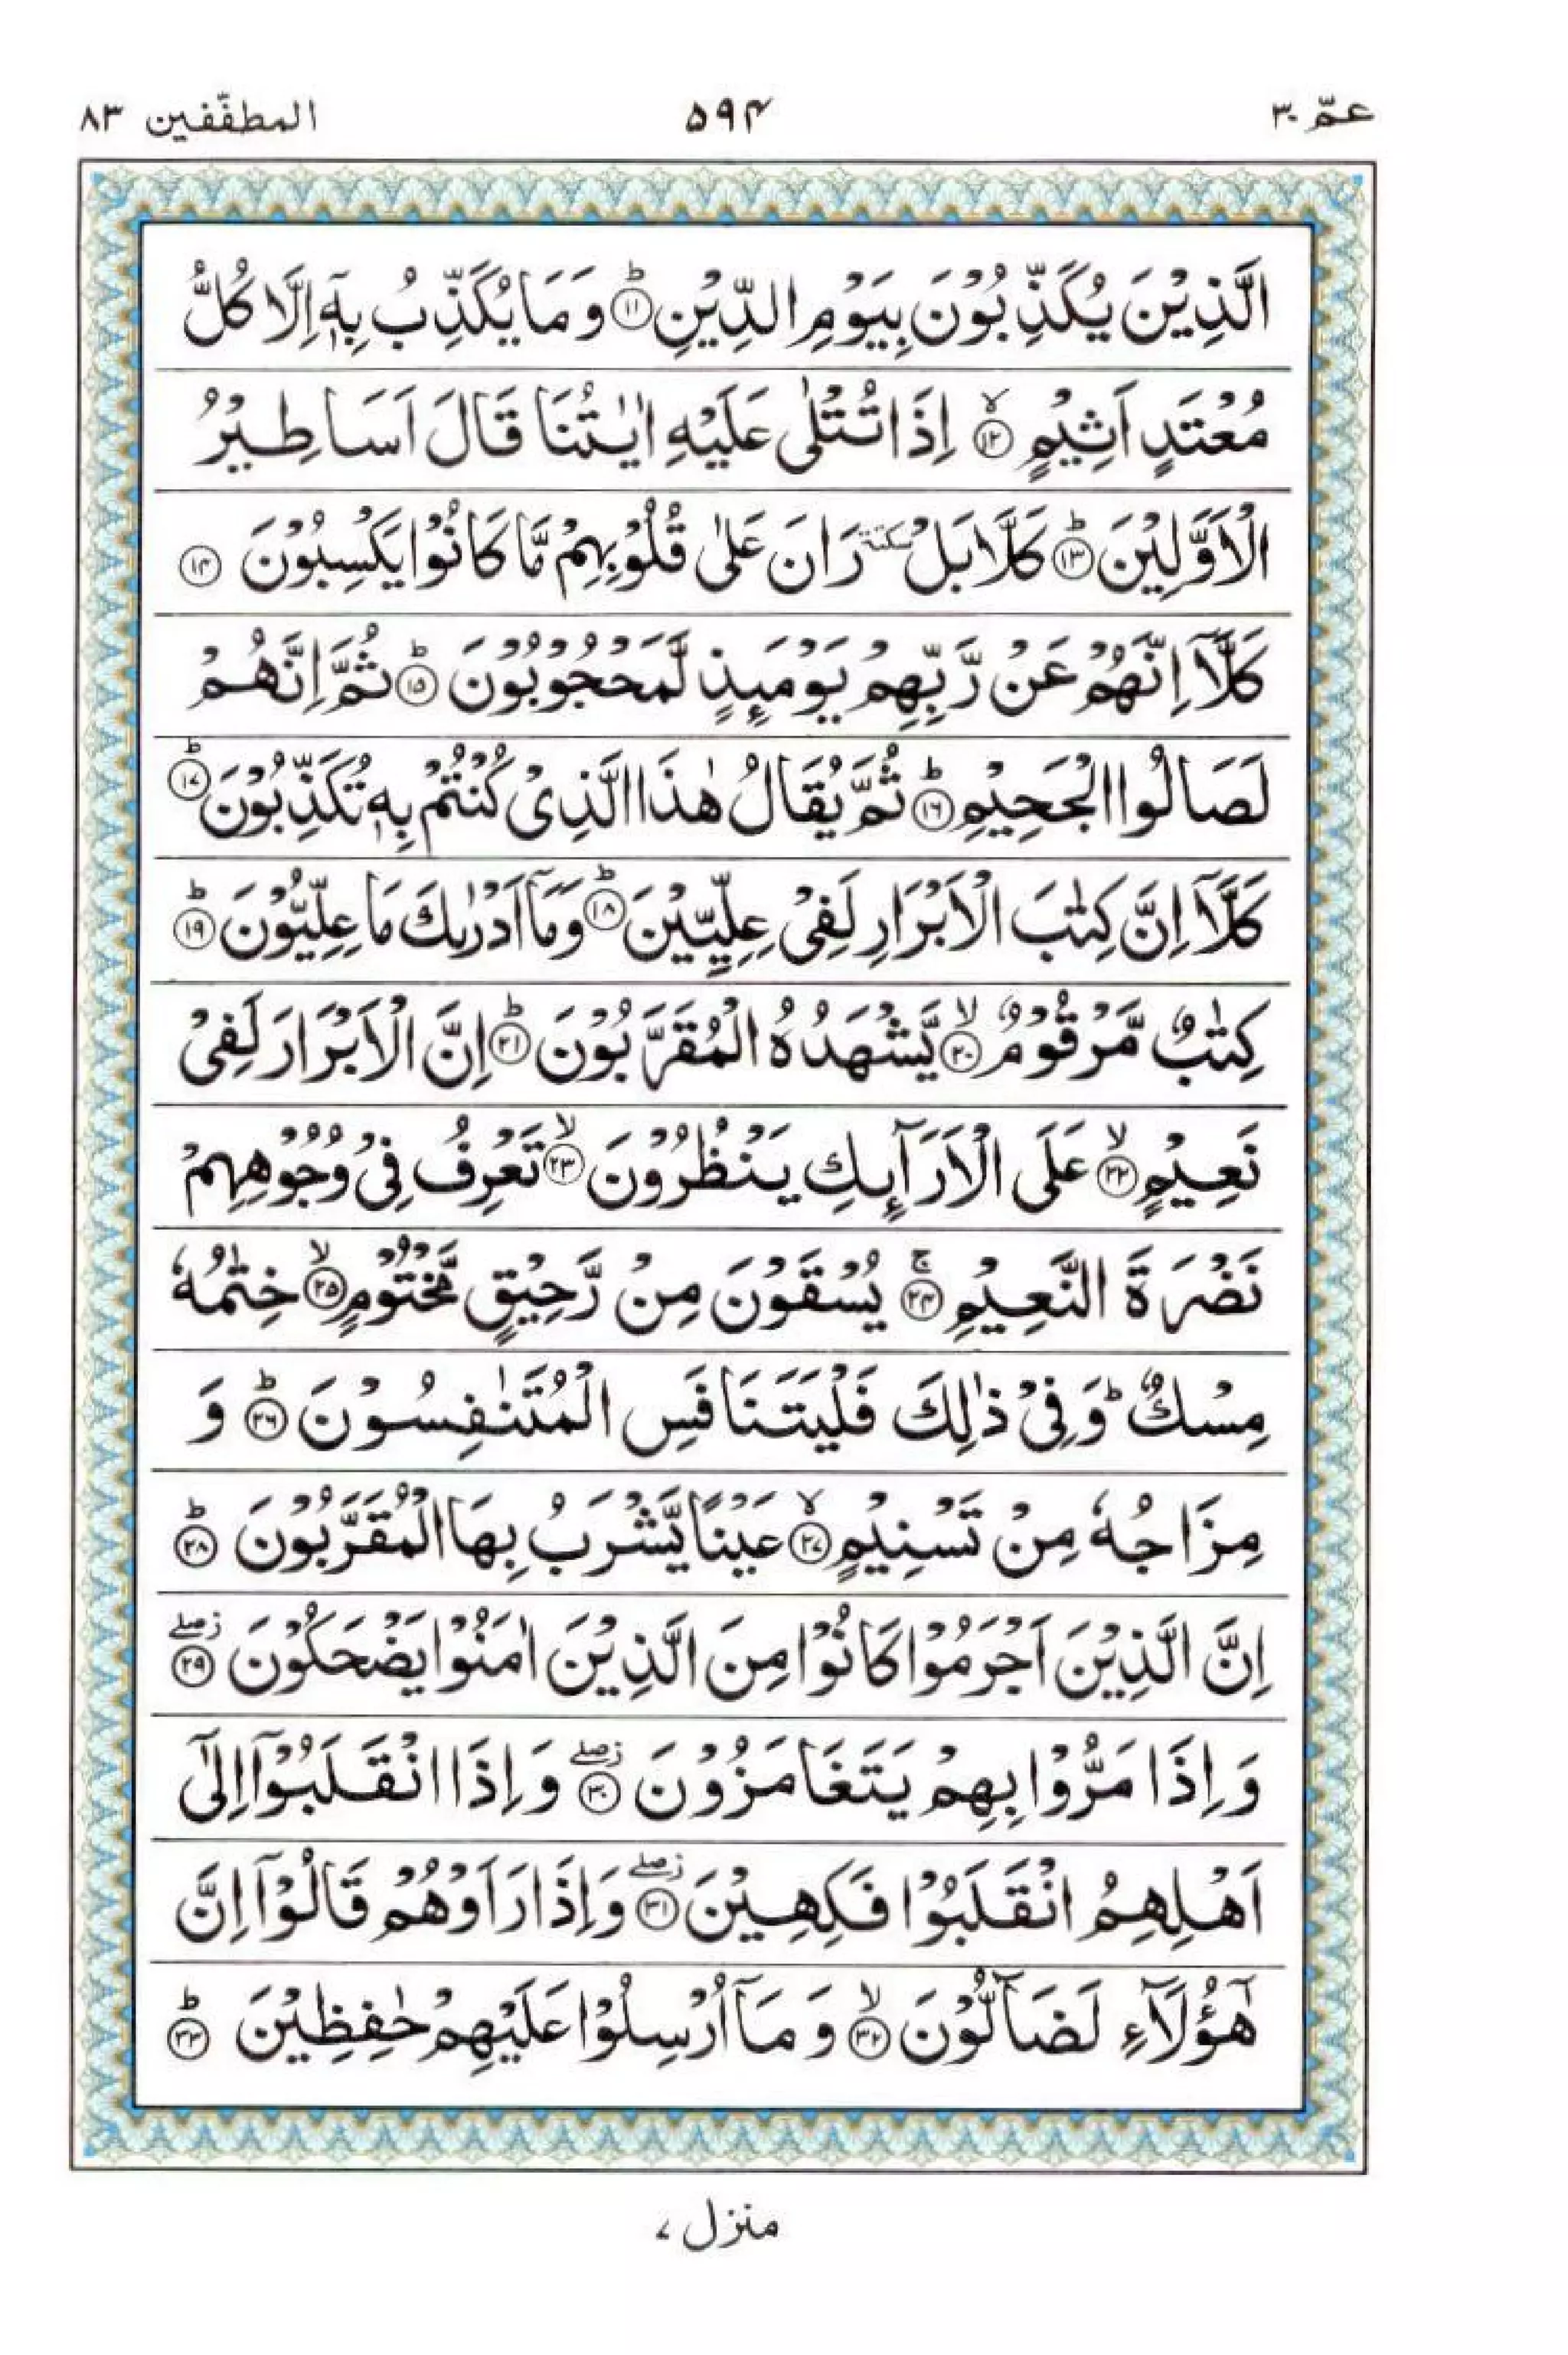 عمّ ۳۰ ۵۹۴ المطفّفين ۸۳
الَّذِيْنَ يُكَذِّبُوْنَ بِيَوْمِ الدِّيْنِ ؕ۝۱۱ وَمَا يُكَذِّبُ بِهٖۤ اِلَّا كُلُّ
مُعْتَدٍ اَثِيْمٍ ۙ۝۱۲ اِذَا تُتْلٰى عَلَيْهِ اٰيٰتُنَا قَالَ اَسَاطِيْرُ
الْاَوَّلِيْنَ ؕ۝۱۳ كَلَّا بَلْ سكتة رَانَ عَلٰى قُلُوْبِهِمْ مَّا كَانُوْا يَكْسِبُوْنَ ۝۱۴
كَلَّاۤ اِنَّهُمْ عَنْ رَّبِّهِمْ يَوْمَىِٕذٍ لَّمَحْجُوْبُوْنَ ؕ۝۱۵ ثُمَّ اِنَّهُمْ
لَصَالُوا الْجَحِيْمِ ؕ۝۱۶ ثُمَّ يُقَالُ هٰذَا الَّذِىْ كُنْتُمْ بِهٖ تُكَذِّبُوْنَ ؕ۝۱۷
كَلَّاۤ اِنَّ كِتٰبَ الْاَبْرَارِ لَفِىْ عِلِّيِّيْنَ ؕ۝۱۸ وَمَاۤ اَدْرٰىكَ مَا عِلِّيُّوْنَ ؕ۝۱۹
كِتٰبٌ مَّرْقُوْمٌ ۙ۝۲۰ يَّشْهَدُهُ الْمُقَرَّبُوْنَ ؕ۝۲۱ اِنَّ الْاَبْرَارَ لَفِىْ
نَعِيْمٍ ۙ۝۲۲ عَلَى الْاَرَآىِٕكِ يَنْظُرُوْنَ ۙ۝۲۳ تَعْرِفُ فِىْ وُجُوْهِهِمْ
نَضْرَةَ النَّعِيْمِ ۚ۝۲۴ يُسْقَوْنَ مِنْ رَّحِيْقٍ مَّخْتُوْمٍ ۙ۝۲۵ خِتٰمُهٗ
مِسْكٌ ؕ وَفِىْ ذٰلِكَ فَلْيَتَنَافَسِ الْمُتَنٰفِسُوْنَ ؕ۝۲۶ وَ
مِزَاجُهٗ مِنْ تَسْنِيْمٍ ۙ۝۲۷ عَيْنًا يَّشْرَبُ بِهَا الْمُقَرَّبُوْنَ ؕ۝۲۸
اِنَّ الَّذِيْنَ اَجْرَمُوْا كَانُوْا مِنَ الَّذِيْنَ اٰمَنُوْا يَضْحَكُوْنَ ز صلے ۝۲۹
وَاِذَا مَرُّوْا بِهِمْ يَتَغَامَزُوْنَ ز صلے ۝۳۰ وَاِذَا انْقَلَبُوْۤا اِلٰٓى
اَهْلِهِمُ انْقَلَبُوْا فَكِهِيْنَ ز صلے ۝۳۱ وَاِذَا رَاَوْهُمْ قَالُوْۤا اِنَّ
هٰٓؤُلَآءِ لَضَآلُّوْنَ ۙ۝۳۲ وَمَاۤ اُرْسِلُوْا عَلَيْهِمْ حٰفِظِيْنَ ؕ۝۳۳
منزل ۷